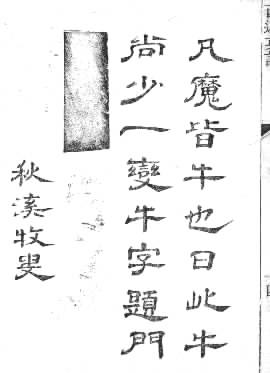 凡魔皆牛也曰此牛
尚少一變牛字題門
秋溪牧叟